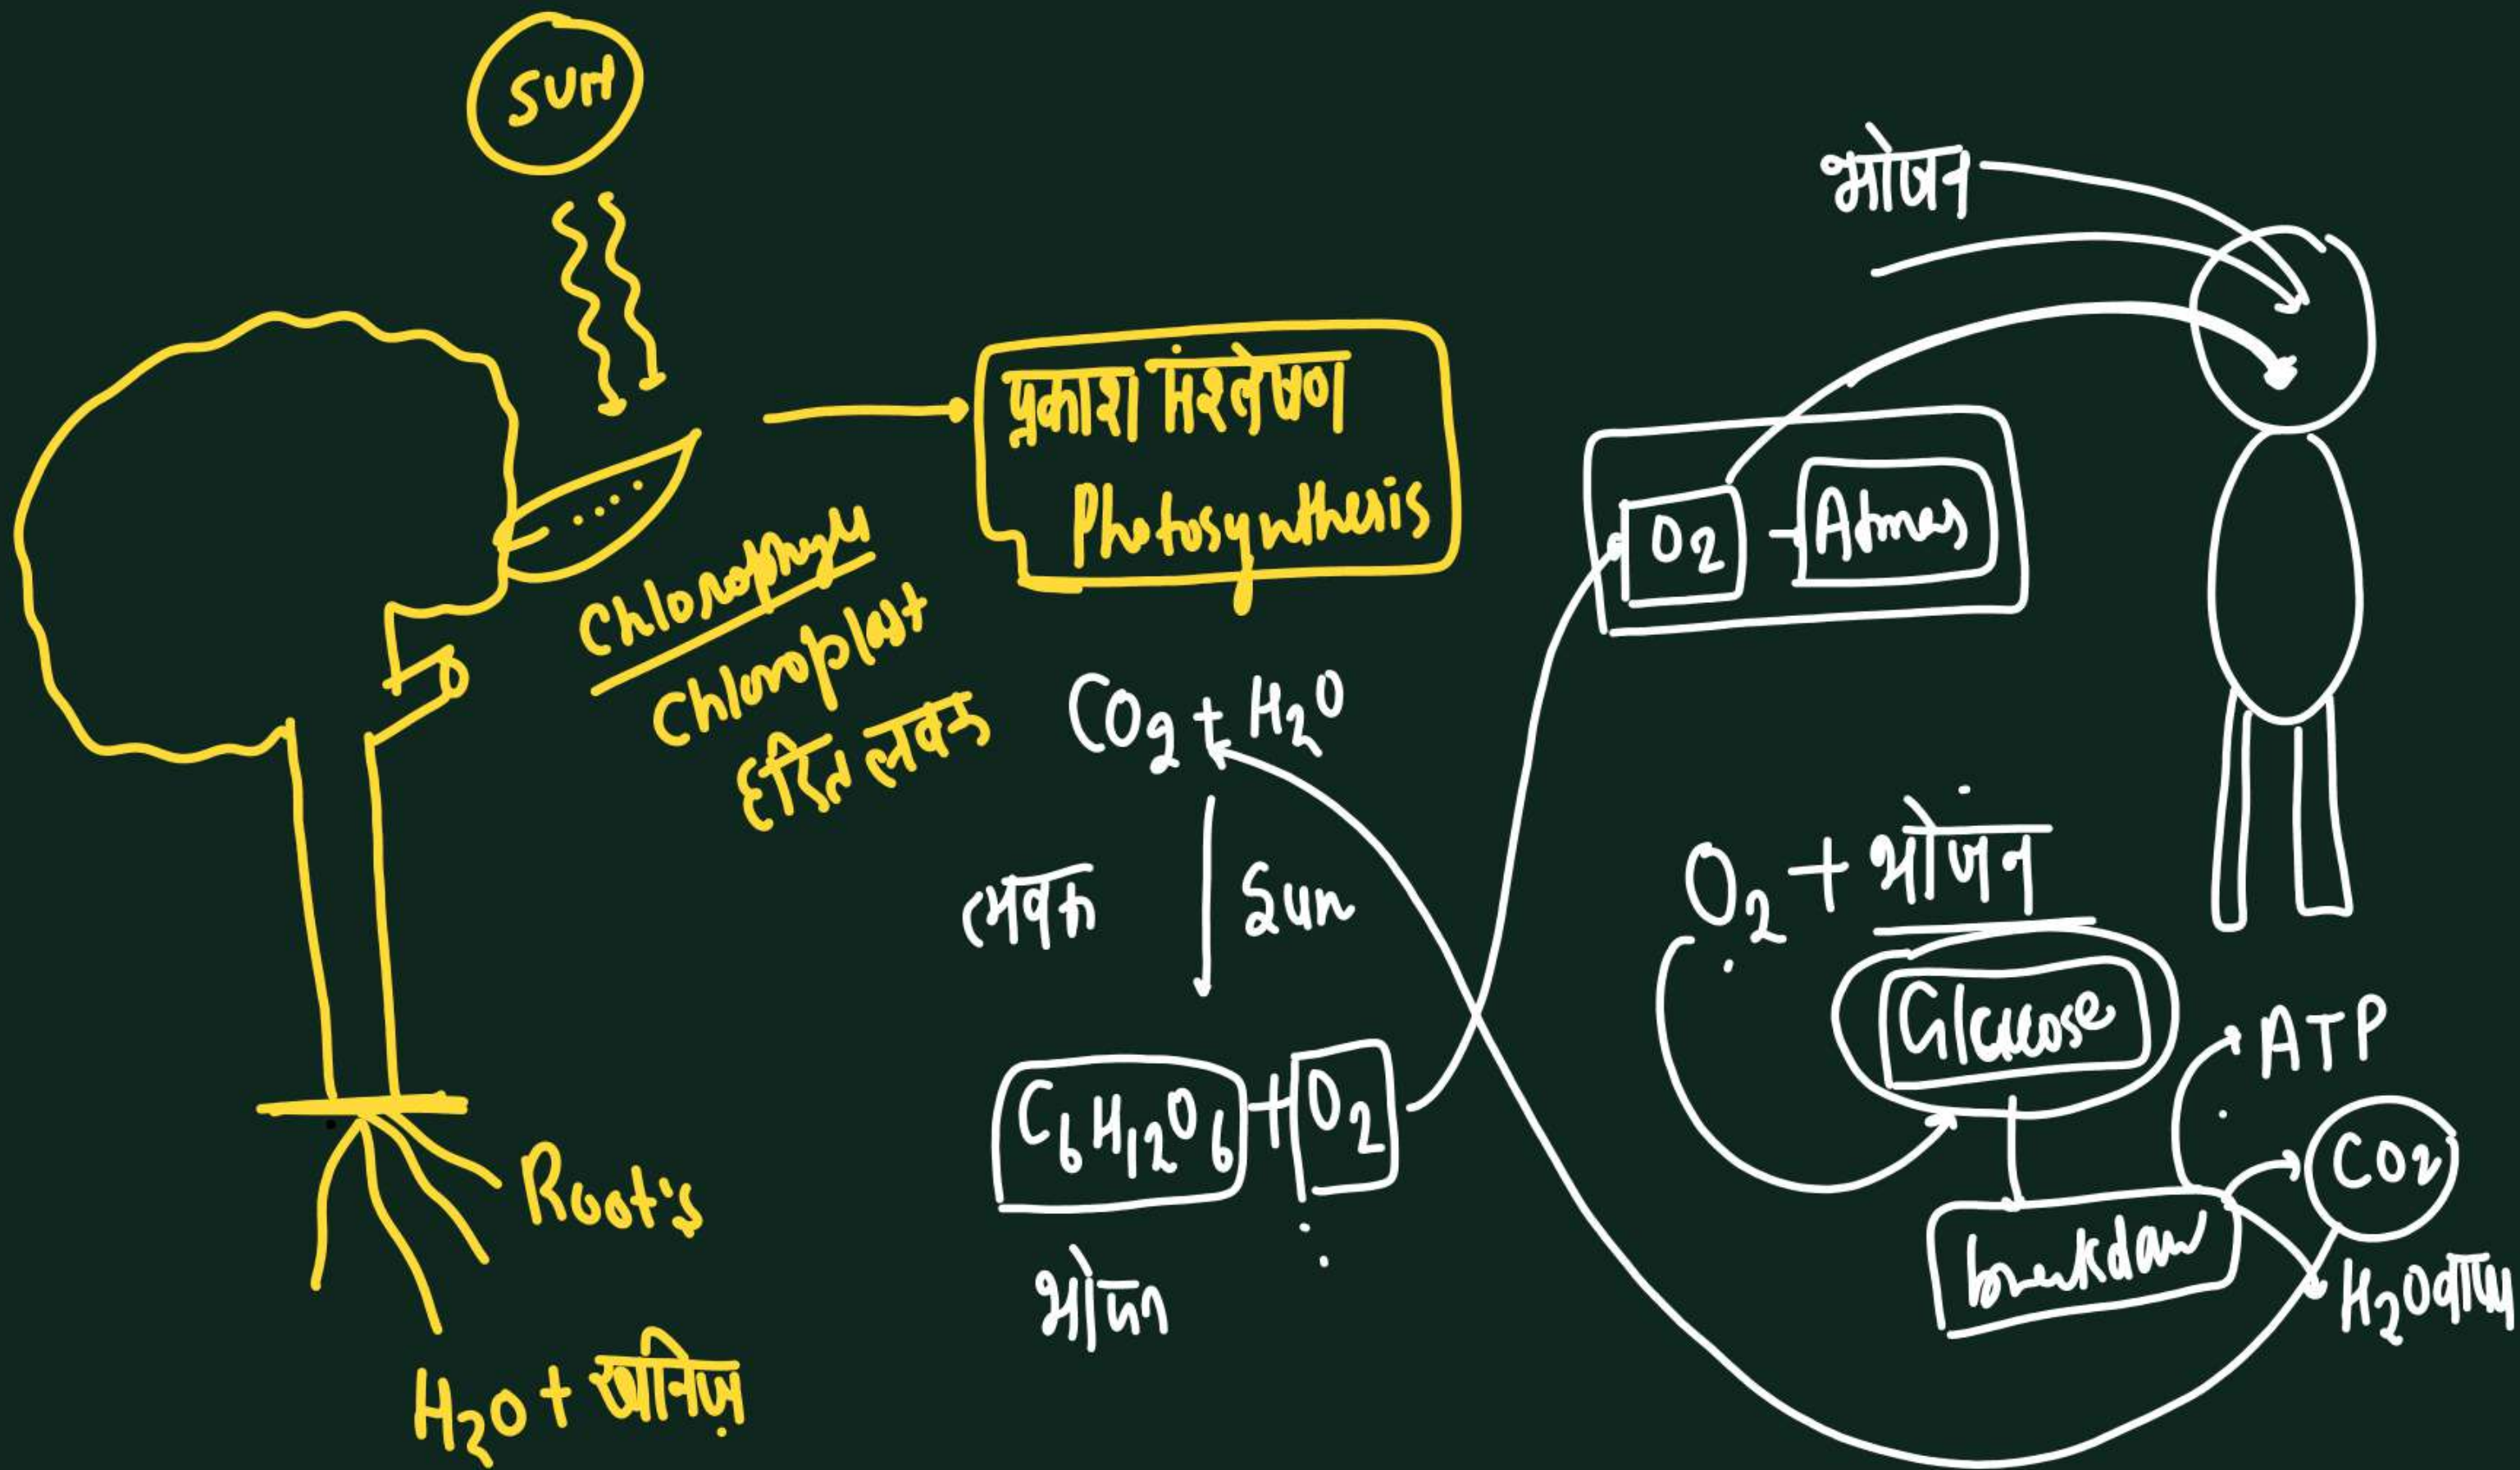 SUN
प्रकाश संश्लेषण
Photosynthesis
Chlorophyll
Chloroplast
हरित लवक
Root's
H2O + खनिज
CO2 + H2O
लवक
Sun
C6H12O6 + O2
भोजन
भोजन
O2 - Atmos
O2 + भोजन
Glucose
ATP
CO2
breakdown
H2O वाष्प